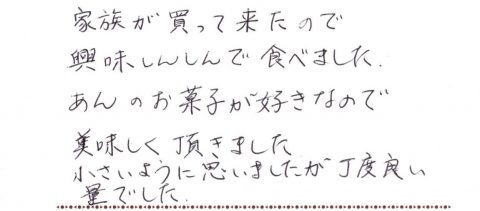 家族が買って来たので
興味しんしんで食べました.
あんのお菓子が好きなので
美味しく頂きました
小さいように思いましたが丁度良い
量でした.